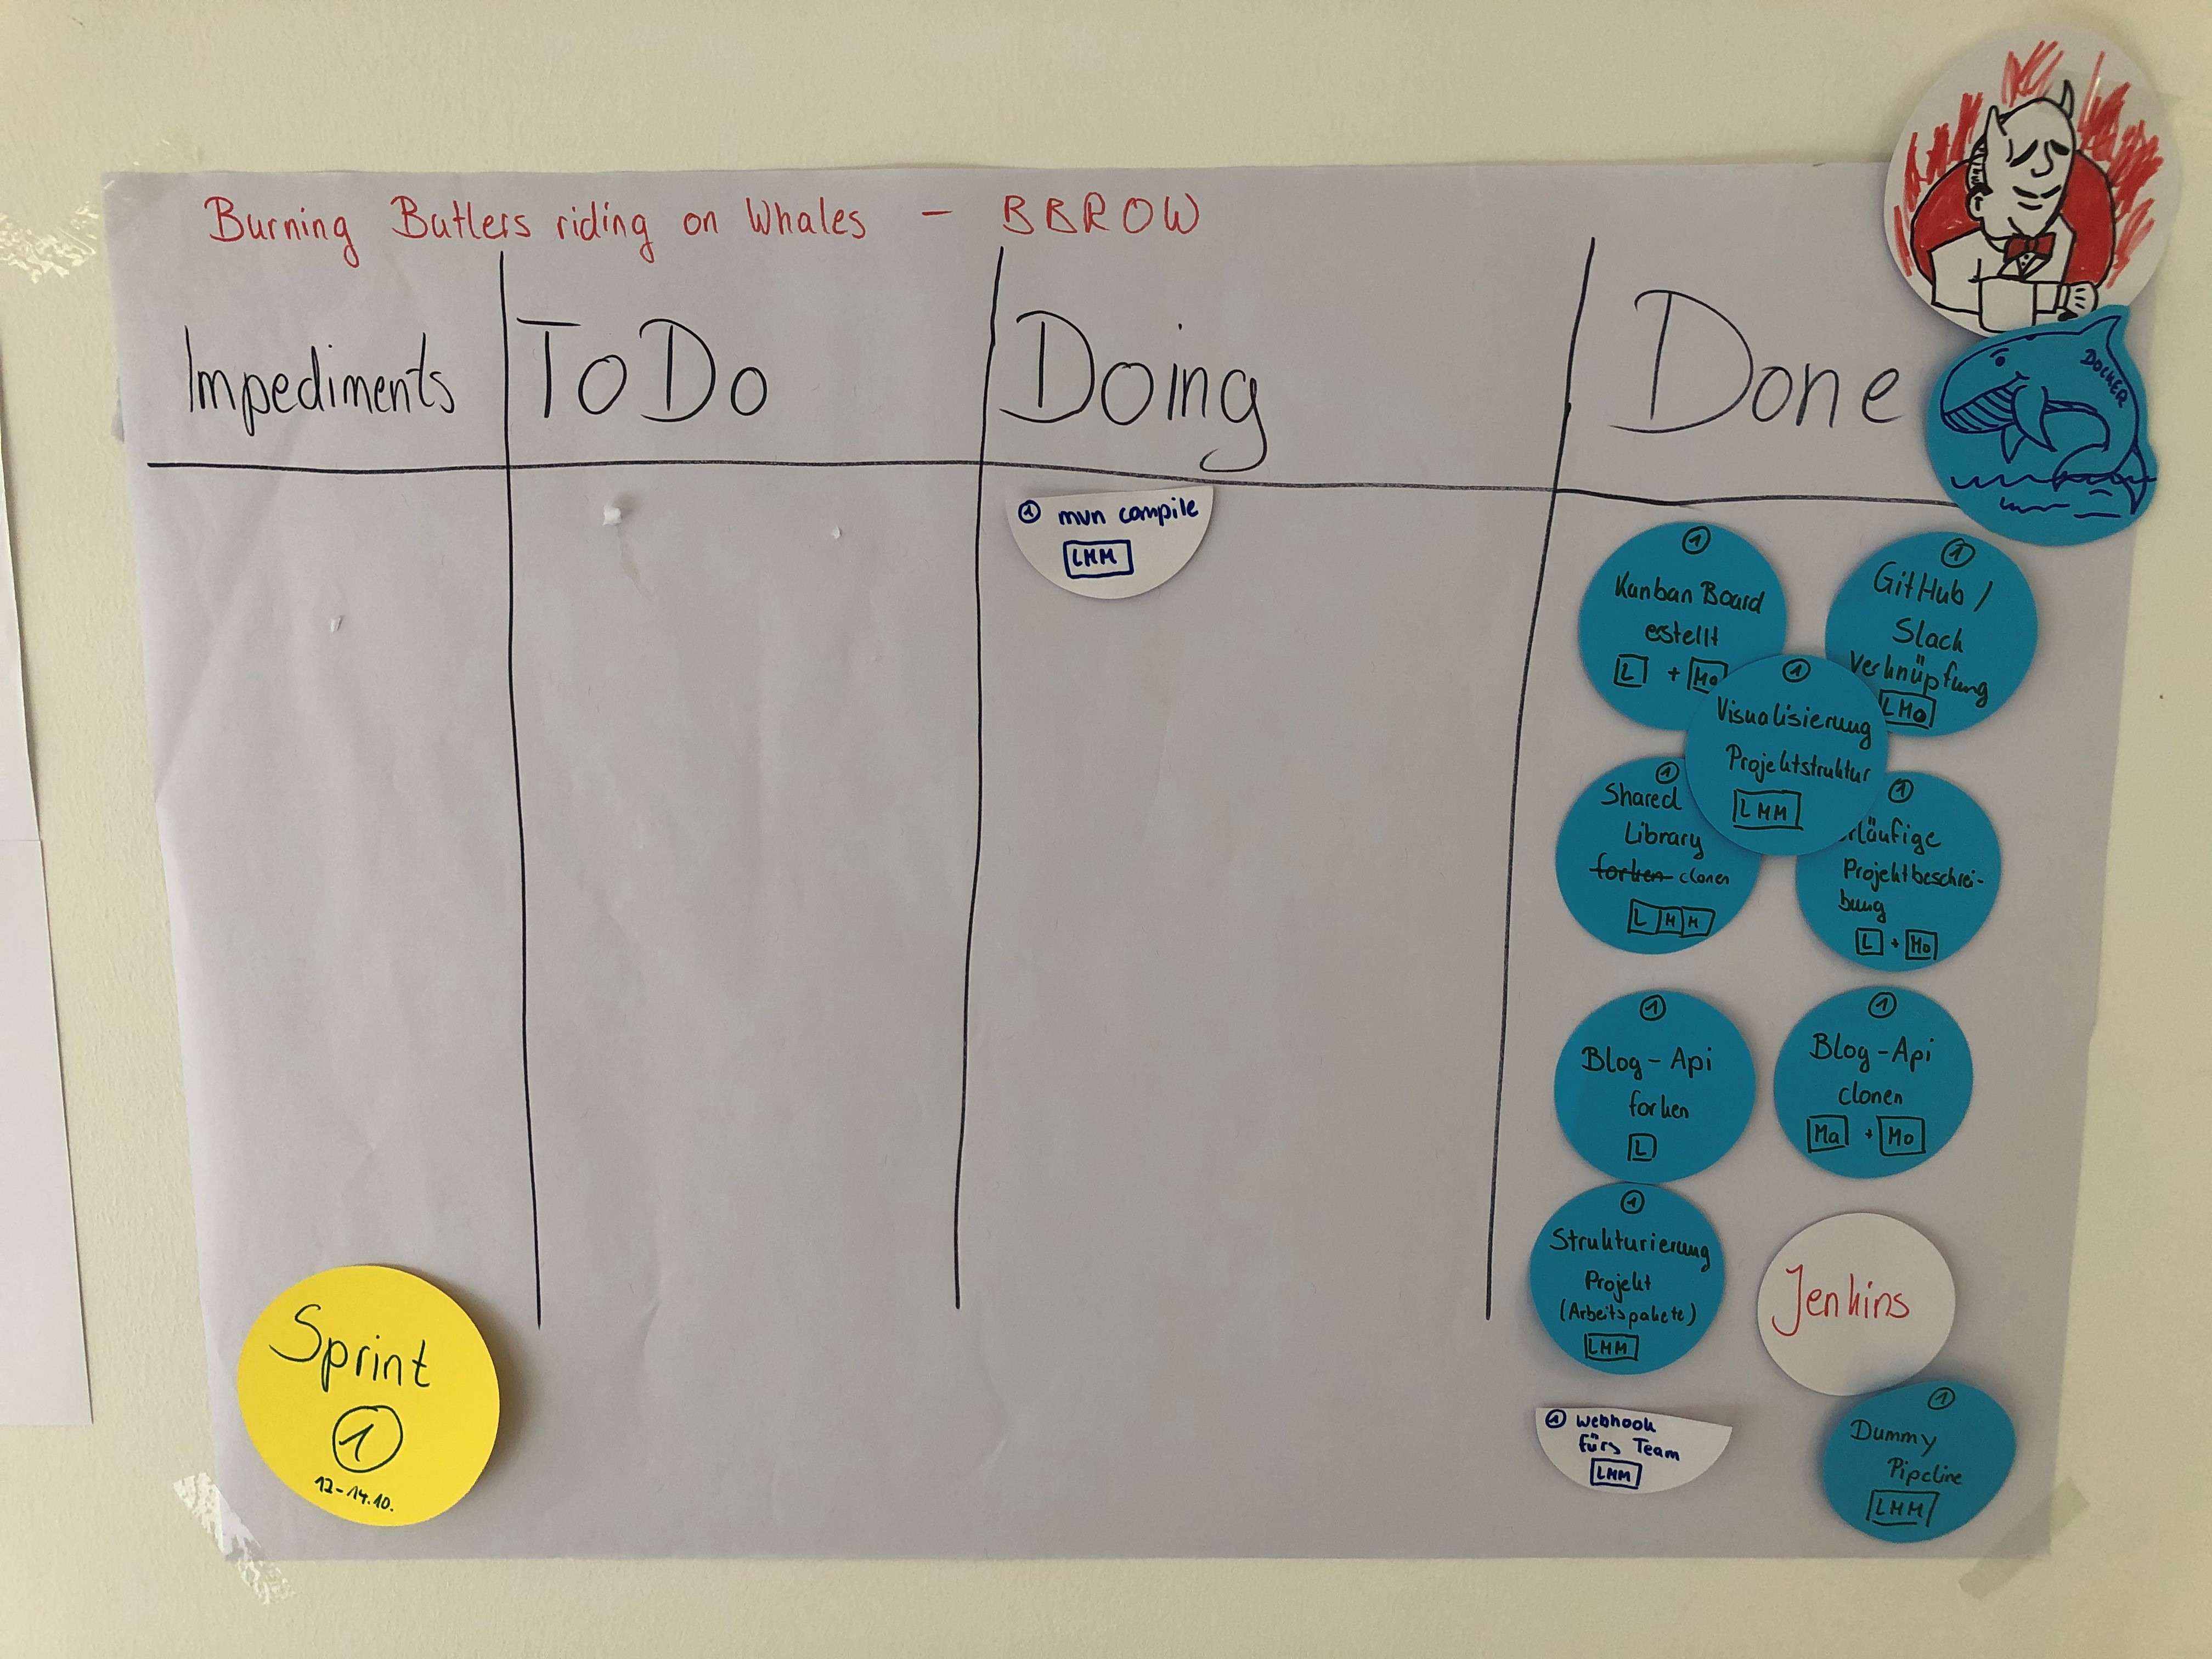 Burning Butlers riding on Whales - BBROW
Impediments
ToDo
Doing
Done
DOCKER
① mvn compile
LMM
①
Kanban Board
erstellt
L + Mo
①
GitHub /
Slack
Verknüpfung
LMo
①
Visualisierung
Projektstruktur
LMM
①
Shared
Library
forken clonen
LMM
①
rläufige
Projektbeschrei-
bung
L + Mo
①
Blog-Api
forken
L
①
Blog-Api
clonen
Ma + Mo
①
Strukturierung
Projekt
(Arbeitspakete)
LMM
Jenkins
① Webhook
fürs Team
LMM
①
Dummy
Pipeline
LMM
Sprint
①
12-14.10.